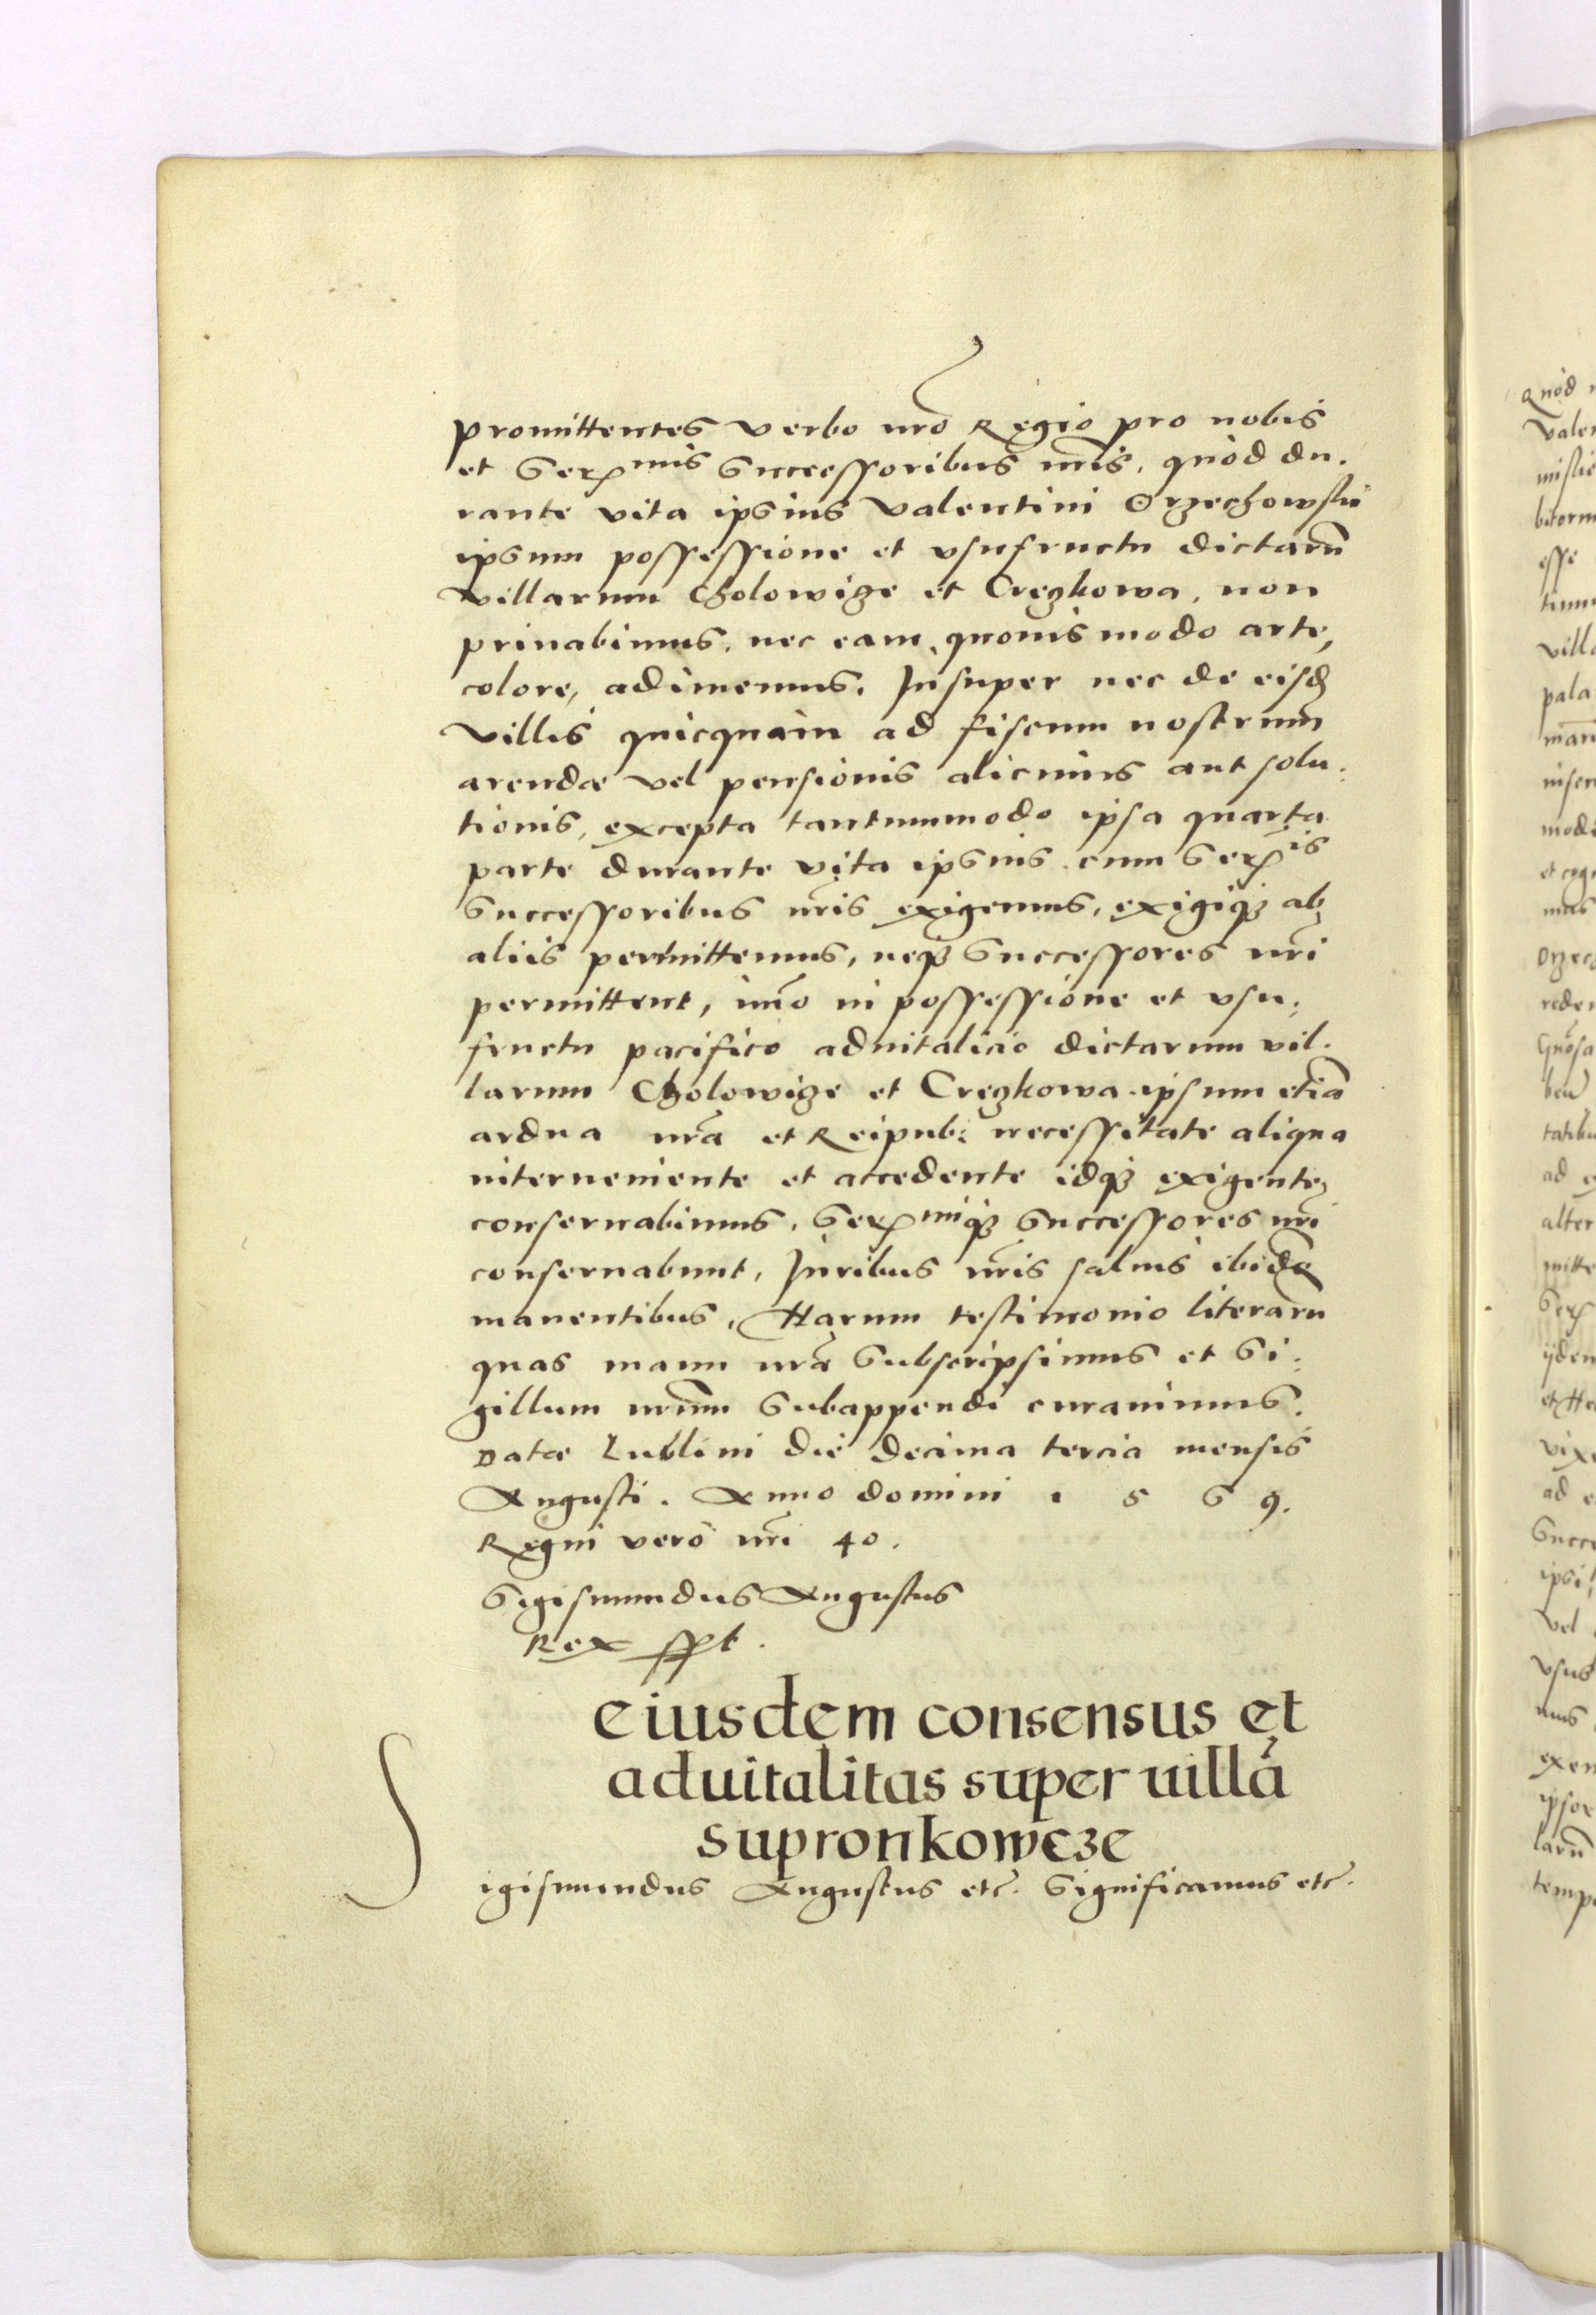 promittentes verbo nrō Regio pro nobis
et Serꝫmis Successoribus nr̄is, quòd du.
rante vita ipsius Valentini Orzechowskii
ipsum possessione et vsufructu dictarū
villarum Cholowize et Cręzkowa, non
priuabimus, nec eam, quouis modo arte,
colore, adimemus. Insuper nec de eisd̄
villis quicquam ad fiscum nostrum
arendæ vel pensionis alicuius aut solu:
tionis, excepta tantummodo ipsa quarta
parte durante vita ipsius cum Serꝫis
Successoribus nr̄is exigemus, exigiqꝫ ab
aliis permittemus, neqꝫ Successores nr̄i
permittent, im̄o in possessione et vsu:
fructu pacifico aduitalicio dictarum vil.
larum Cholowize et Cręzkowa ipsum etiā
ardua nr̄a et Reipub: necessitate aliqua
interueniente et accedente idqꝫ exigente,
conseruabimus, Serꝫmiqꝫ Successores nr̄i
conseruabunt, Iuribus nr̄is saluis ibidē
manentibus, Harum testimonio literarū
quas manu nr̄a Subscripsimus et Si:
gillum nr̄um Subappendi curauimus.
Datæ Lublini die decima tercia mensis
Augusti. Anno domini 1 5 6 9.
Regni verò nr̄i 40.
Sigismundus Augustus
Rex sspt.
eiusdem consensus et
aduitalitas super uillā
supronkowcze
Sigismundus Augustus etc̄. Significamus etc̄.